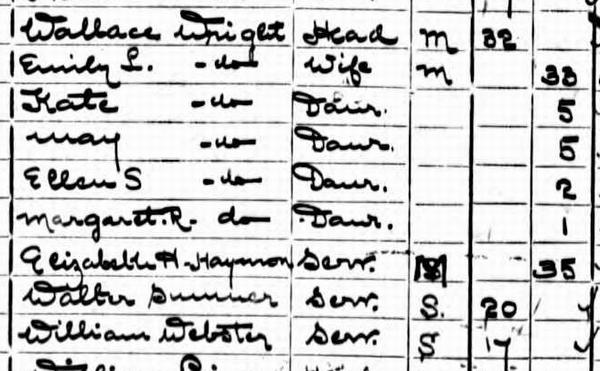 Wallace Wright Head M 32
Emily L. -do- Wife M 33
Kate -do- Daur. 5
May -do- Daur. 5
Ellen S -do- Daur. 2
Margaret. R. do Daur. 1
Elizabeth H. Haymon Serv. 35
Walter Sumner Serv. S. 20
William Webster Serv. S 17